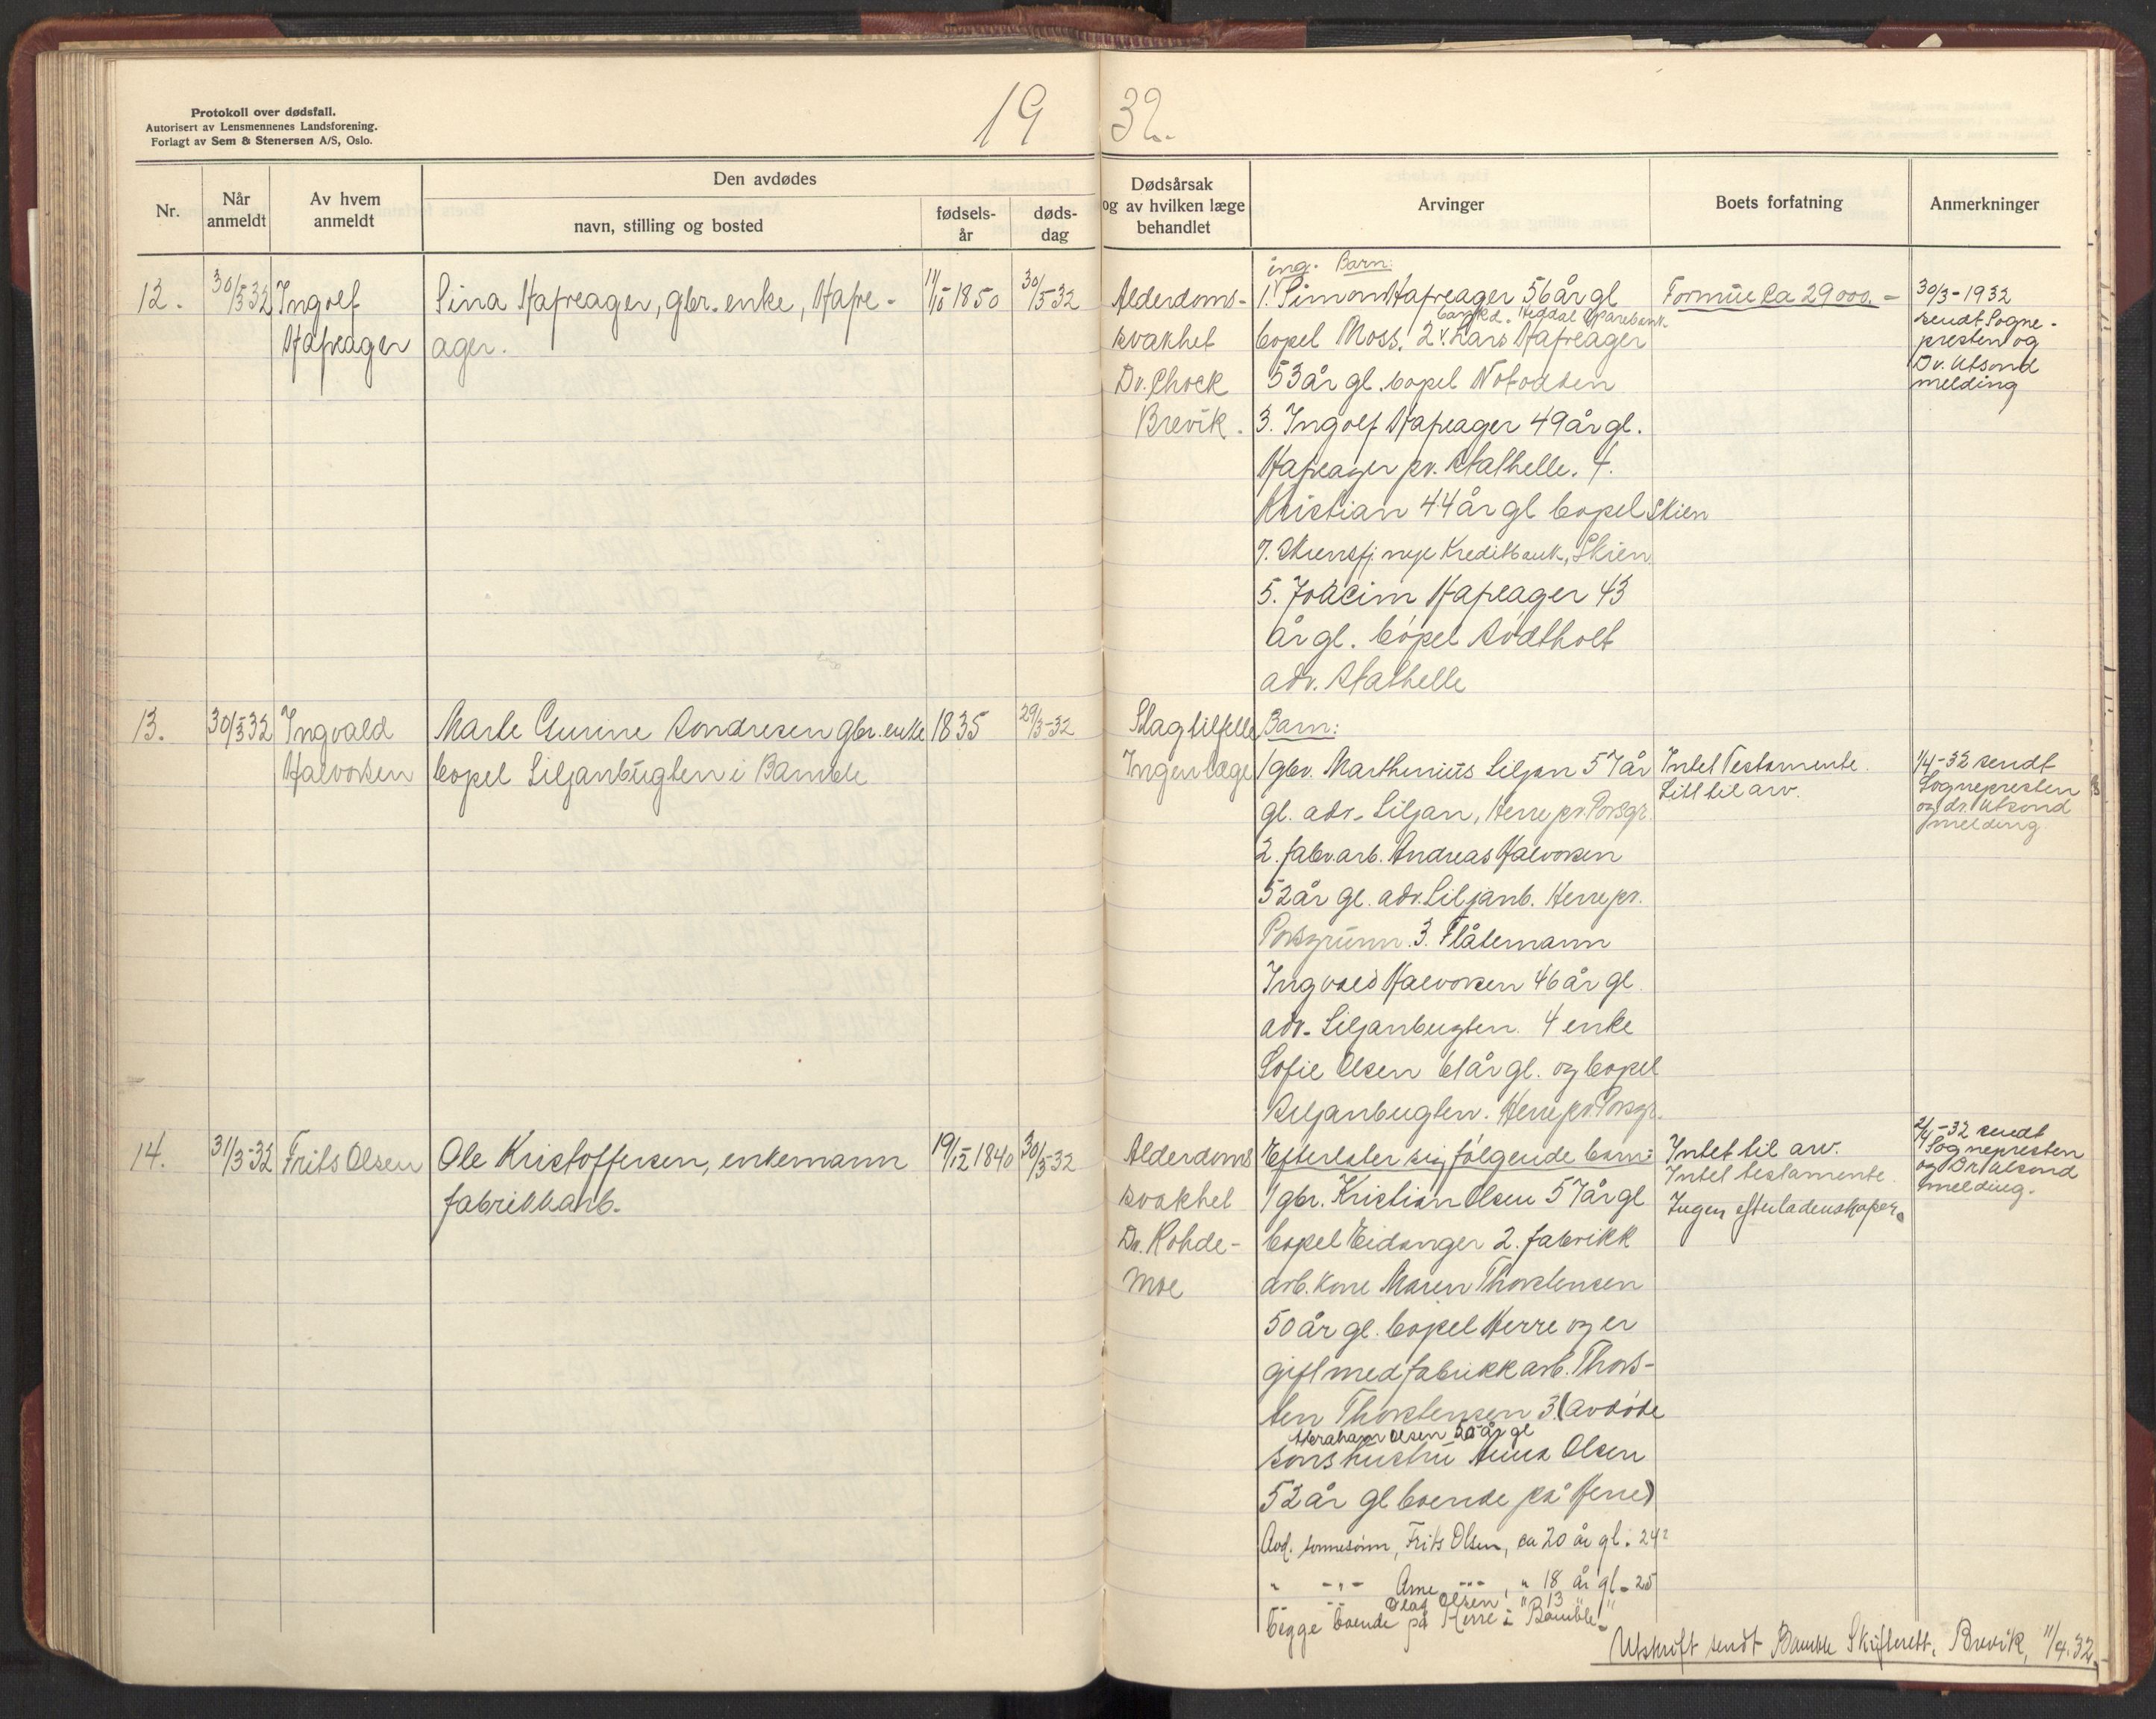 Protokoll over dødsfall.
Autorisert av Lensmennenes Landsforening.
Forlagt av Sem & Stenersen A/S, Oslo.
19 32.
Nr.
Når anmeldt
Av hvem anmeldt
Den avdødes
navn, stilling og bosted
fødsels-år
døds-dag
Dødsårsak og av hvilken læge behandlet
Arvinger
Boets forfatning
Anmerkninger
12.
30/3-32
Ingolf
Hafreager
Sina Hafreager, gbr. enke, Hafre-
ager.
11/10 1850
30/3-32
Alderdoms-
svakhet
Dr. Chock
Brevik.
ing. Barn:
1. Simon Hafreager 56 år gl
bopel Moss. 2. Lars Hafreager
53 år gl. bopel Notodden
3. Ingolf Hafreager 49 år gl.
Hafreager pr. Stathelle. 4.
Kristian 44 år gl bopel Skien
Kreditbank, Skien
5. Joacim Hafreager 43
år gl. bopel
adr. Stathelle
Formue ca 29000.-
30/3-1932
sendt Sogne-
presten og
Dr. Utsond
melding
13.
30/3-32
Ingvald
Halvorsen
Marte Gurine Sondresen gbr. enke
bopel Siljanbugten i Bamble
1835
29/3-32
Slagtilfelle
Ingen læge
Barn:
1 gbr. Marthinius Siljan 57 år
gl. adr. Siljan, Herre pr. Porsgr.
2. fabr.arb. Andreas Halvorsen
52 år gl. adr. Siljanb. Herre pr.
Porsgrunn. 3. Flåtemann
Ingvald Halvorsen 46 år gl.
adr. Siljanbugten. 4 enke
Sofie Olsen 61 år gl. og bopel
Siljanbugten. Herre pr. Porsgr.
Intet Testamente.
Litt til arv.
1/4-32 sendt
Sognepresten
og dr. Utsond
melding
14.
31/3-32
Frits Olsen
Ole Kristoffersen, enkemann
fabrikkarb.
19/12 1840
30/3-32
Alderdoms
svakhet
Dr. Rohde-
Moe
Efterlater sig følgende barn:
1 gbr. Kristian Olsen 57 år gl
bopel Eidanger 2. fabrikk
arb. kone Maren Thorstensen
50 år gl. bopel Herre og er
gift med fabrikkarb. Thors-
ten Thorstensen 3. (avdøde
Abraham Olsen 50 år gl
sons hustru Anna Olsen
52 år gl boende på Herre)
Avd. sønnesønn, Frits Olsen, ca 20 år gl. 24?
" -"- Arne -"-, " 18 år gl. 25
" -"- Olaf Olsen, " 13 " "
begge boende på Herre i Bamble.
Intet til arv.
Intet testamente.
Ingen efterladenskaper.
2/4-32 sendt
Sognepresten
og Dr Utsond
melding.
Utskrift sendt Bamble Skifterett, Brevik, 11/4.32.